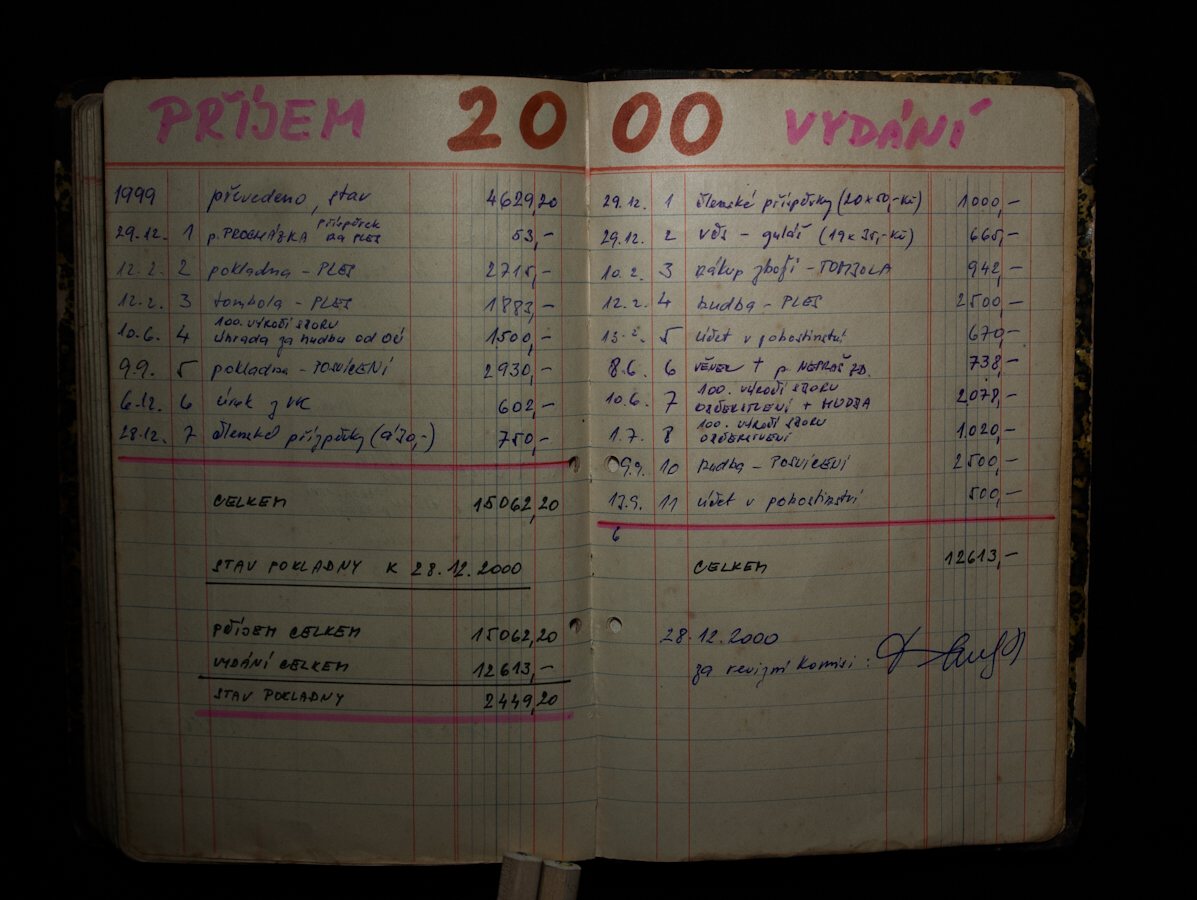 PŘÍJEM 20
1999 převedeno, stav 4629,20
příspěvek
29.12. 1 p. PROCHÁZKA NA PLES 53,-
12.2. 2 pokladna - PLES 2715,-
12.2. 3 tombola - PLES 1883,-
100. výročí SBORU
10.6. 4 úhrada za hudbu od OÚ 1500,-
9.9. 5 pokladna - POSVÍCENÍ 2930,-
6.12. 6 úrok z VK 602,-
28.12. 7 členské příspěvky (á 30,-) 750,-
CELKEM 15062,20
STAV POKLADNY K 28.12.2000
PŘÍJEM CELKEM 15062,20
VYDÁNÍ CELKEM 12613,-
STAV POKLADNY 2449,20
00 VYDÁNÍ
29.12. 1 členské příspěvky (20x50,-Kč) 1000,-
29.12. 2 VČS - guláš (19x35,-Kč) 665,-
10.2. 3 nákup zboží - TOMBOLA 942,-
12.2. 4 hudba - PLES 2500,-
13.2. 5 účet v pohostinství 670,-
8.6. 6 VĚNEC + p. 738,-
100. výročí SBORU
10.6. 7 OBČERSTVENÍ + HUDBA 2078,-
100. výročí SBORU
1.7. 8 OBČERSTVENÍ 1.020,-
9.9. 10 hudba - POSVÍCENÍ 2500,-
13.9. 11 účet v pohostinství 500,-
6
CELKEM 12613,-
28.12.2000
za revizní komisi :